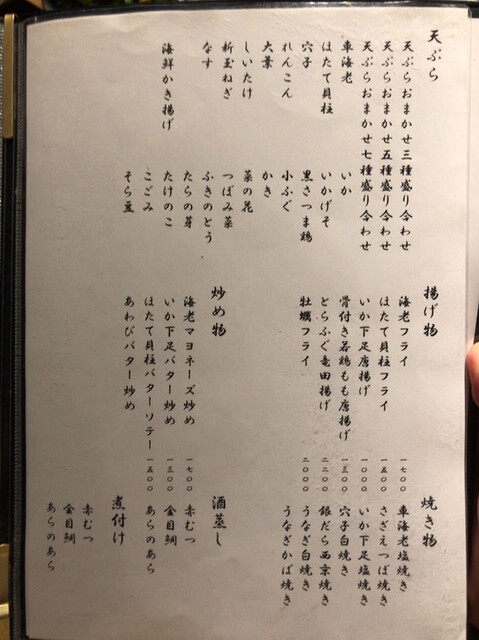 天ぷら
天ぷらおまかせ三種盛り合わせ
天ぷらおまかせ五種盛り合わせ
天ぷらおまかせ七種盛り合わせ
車海老
ほたて貝柱
穴子
れんこん
大葉
しいたけ
新玉ねぎ
なす
海鮮かき揚げ
いか
いかげそ
黒さつま鶏
小ふぐ
かき
菜の花
つぼみ菜
ふきのとう
たらの芽
たけのこ
こごみ
そら豆
揚げ物
海老フライ 一七〇〇
ほたて貝柱フライ 一五〇〇
いか下足唐揚げ 一〇〇〇
骨付き若鶏もも唐揚げ 一三〇〇
とらふぐ竜田揚げ 二二〇〇
牡蠣フライ 二〇〇〇
炒め物
海老マヨネーズ炒め 一七〇〇
いか下足バター炒め 一三〇〇
ほたて貝柱バターソテー 一五〇〇
あわびバター炒め
焼き物
車海老塩焼き
さざえつぼ焼き
いか下足塩焼き
穴子白焼き
銀だら西京焼き
うなぎ白焼き
うなぎかば焼き
酒蒸し
赤むつ
金目鯛
あらのあら
煮付け
赤むつ
金目鯛
あらのあら